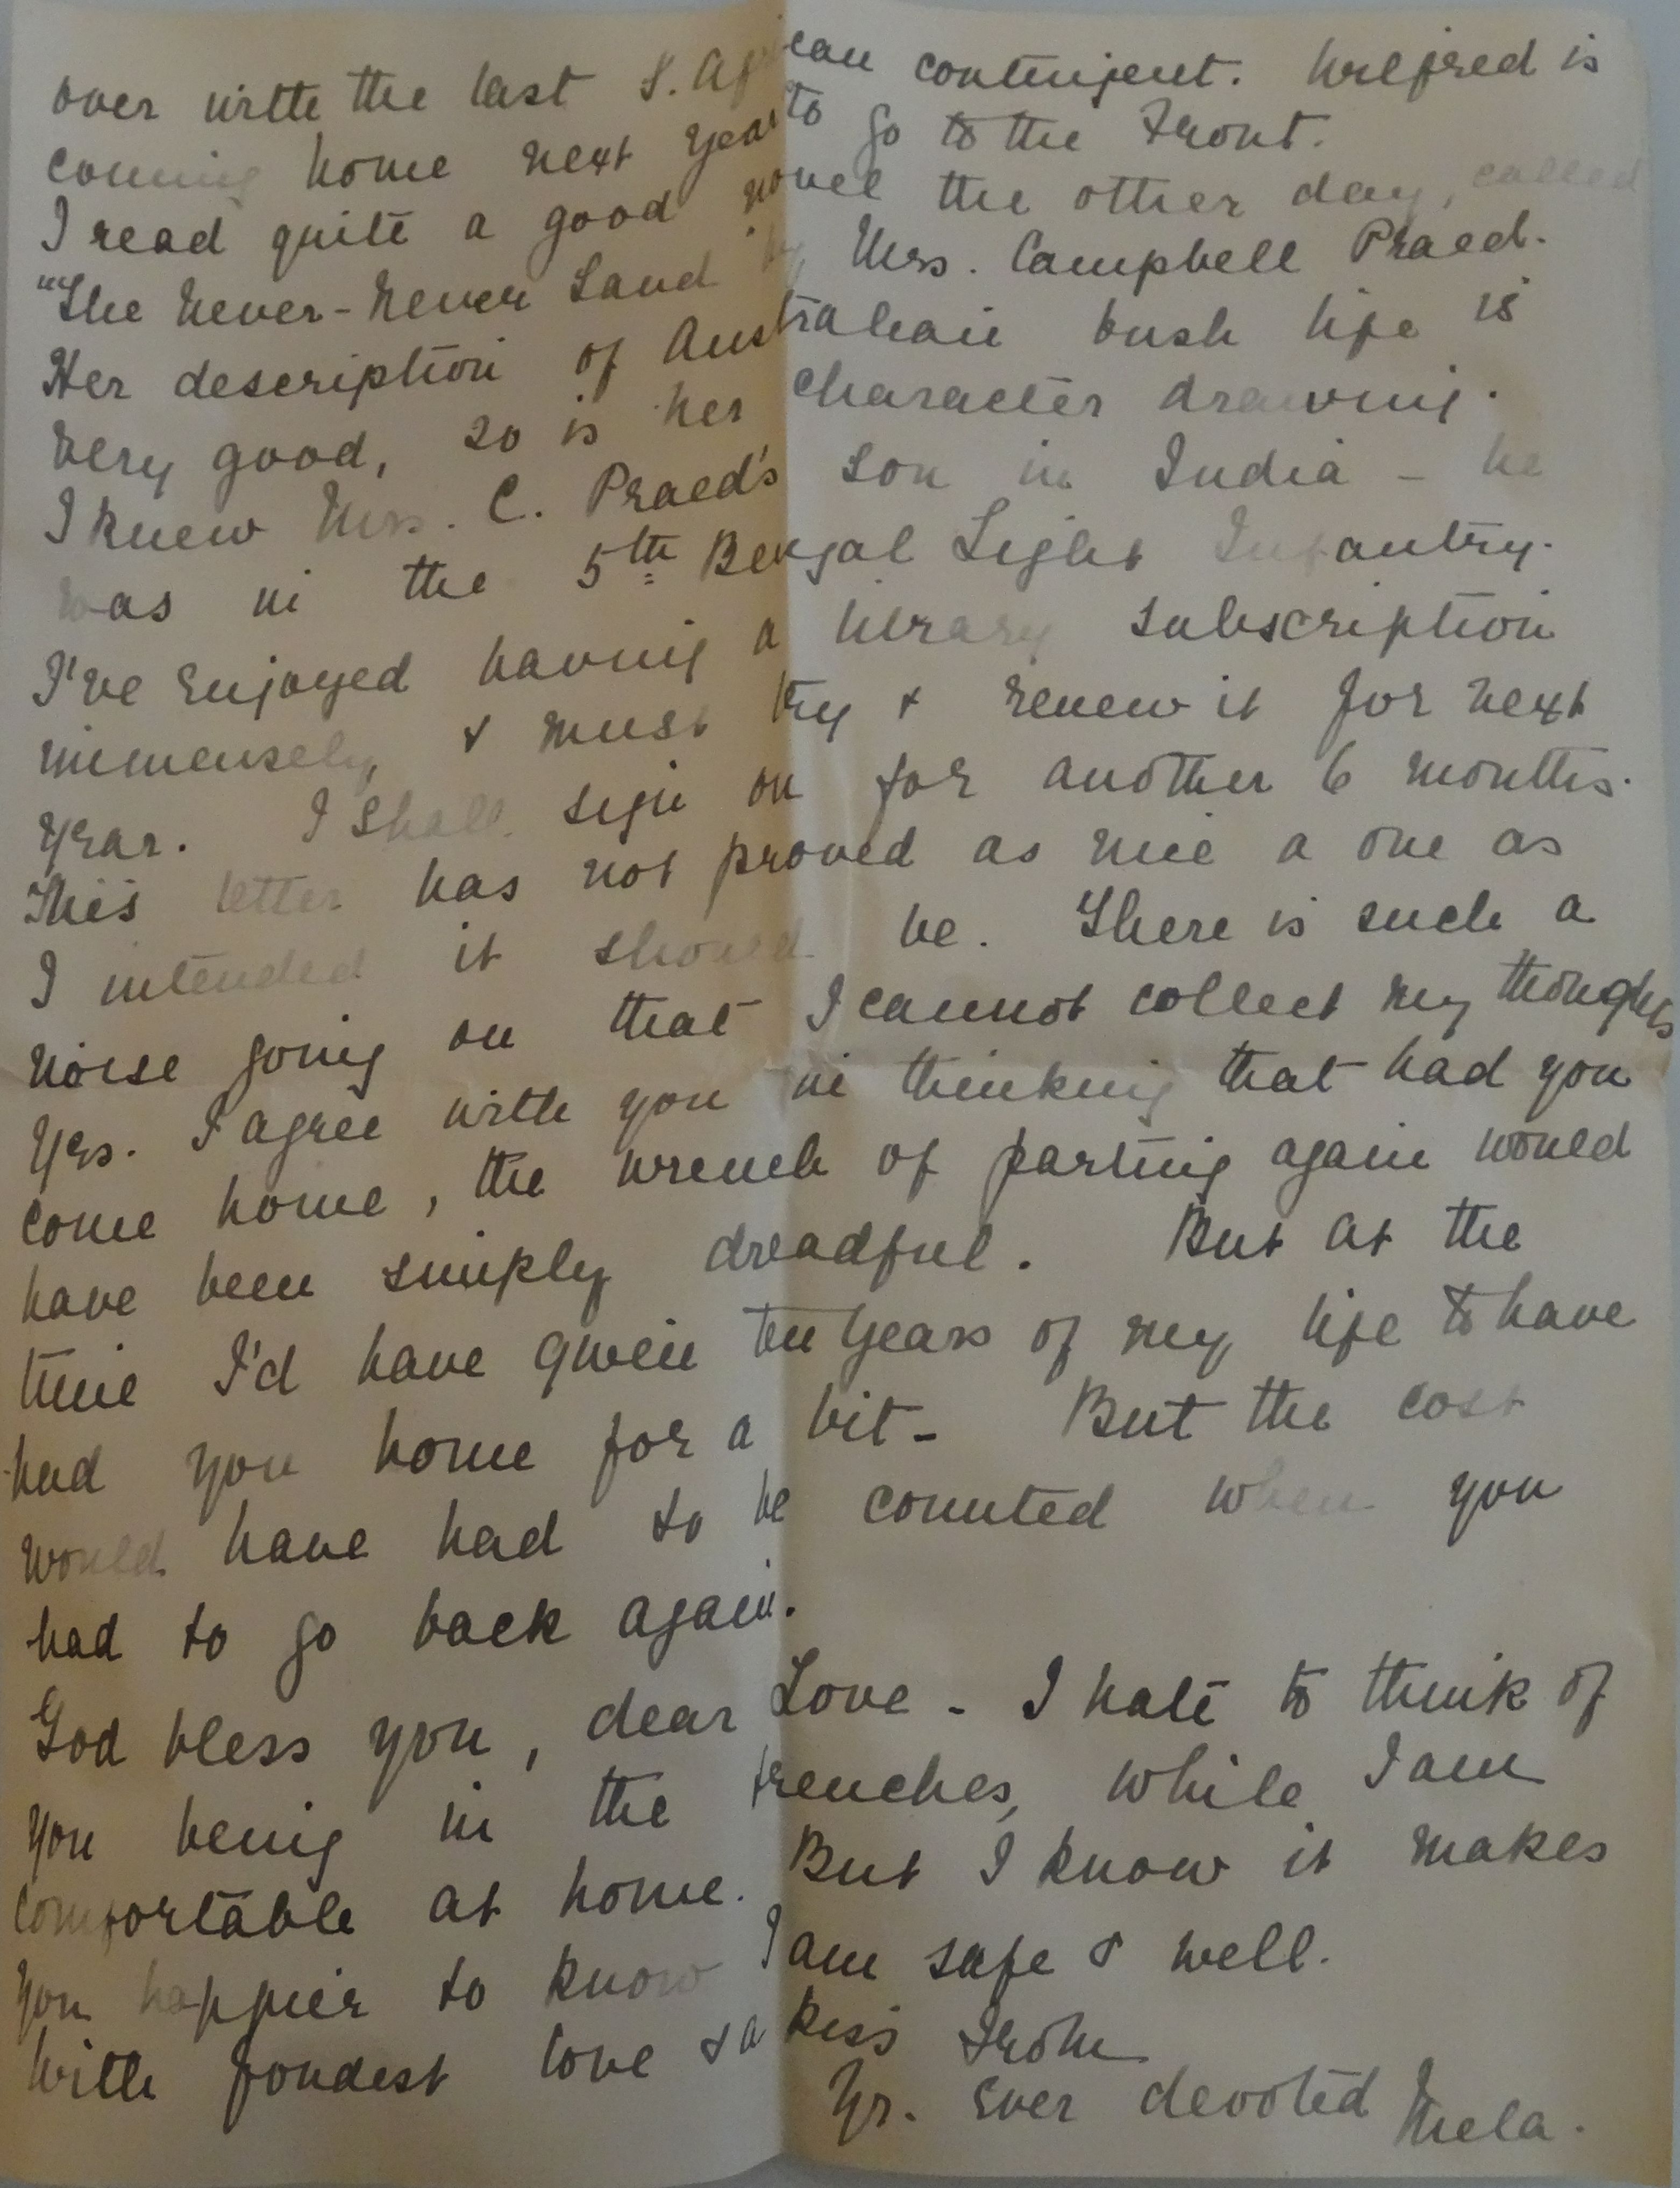 over with the last S. African contingent. Wilfred is
coming home next year to go to the Front.
I read quite a good novel the other day, called
"The Never-Never Land" by Mrs. Campbell Praed.
Her description of Australian bush life is
very good, so is her character drawing.
I knew Mrs. C. Praed's son in India - he
was in the 5th Bengal Light Infantry.
I've enjoyed having a library subscription
immensely, & must try & renew it for next
year. I shall sign on for another 6 months.
This letter has not proved as nice a one as
I intended it should be. There is such a
noise going on that I cannot collect my thoughts
Yes. I agree with you in thinking that had you
come home, the wrench of parting again would
have been simply dreadful. But at the
time I'd have given ten years of my life to have
had you home for a bit - But the cost
would have had to be counted when you
had to go back again.
God bless you, dear Love - I hate to think of
you being in the trenches, while I am
comfortable at home. But I know it makes
you happier to know I am safe & well.
With fondest love & a kiss from
Yr. ever devoted